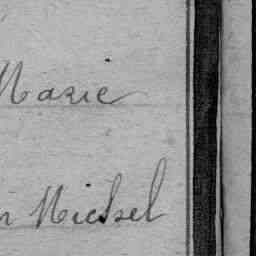 Marie
n Michel